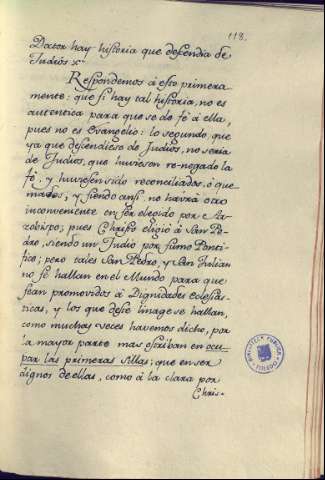 118.
Doctor hay historia que descendia de
Judios &c.
Respondemos á esto primera-
mente: que si hay tal historia, no es
autentica para que se dé fé á ella,
pues no es Evangelio: lo segundo, que
ya que descendiese de Judios, no seria
de Judios, que huviesen re-negado la
fé, y huviesen sido reconciliados, ó que-
mados; y siendo ansi, no havrá otro
inconveniente en ser elegido por Ar-
zobispo; pues Christo eligió á San Pe-
dro, siendo un Judio por sumo Ponti-
fice; pero tales San Pedro, y San Julian
no se hallan en el Mundo para que
sean promovidos á Dignidades eclesiás-
ticas, y los que de se hallan,
como muchas veces havemos dicho, por
la mayor parte mas estriban en ocu-
par las primeras sillas; que en ser
dignos de ellas, como á la clara por
Chris-
BIBLIOTECA PUBLICA
TOLEDO